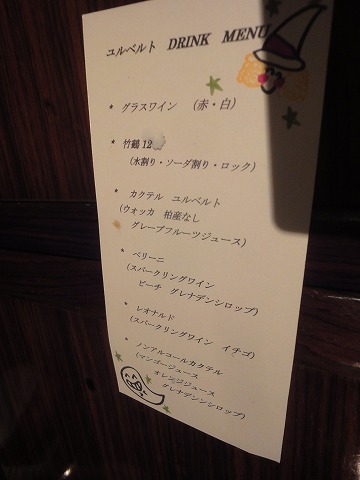 ユルベルト DRINK MENU
* グラスワイン （赤・白）
* 竹鶴 12
（水割り・ソーダ割り・ロック）
* カクテル ユルベルト
（ウォッカ 柏産なし
グレープフルーツジュース）
* ベリーニ
（スパークリングワイン
ピーチ グレナデンシロップ）
* レオナルド
（スパークリングワイン イチゴ）
* ノンアルコールカクテル
（マンゴージュース
オレンジジュース
グレナデンシロップ）